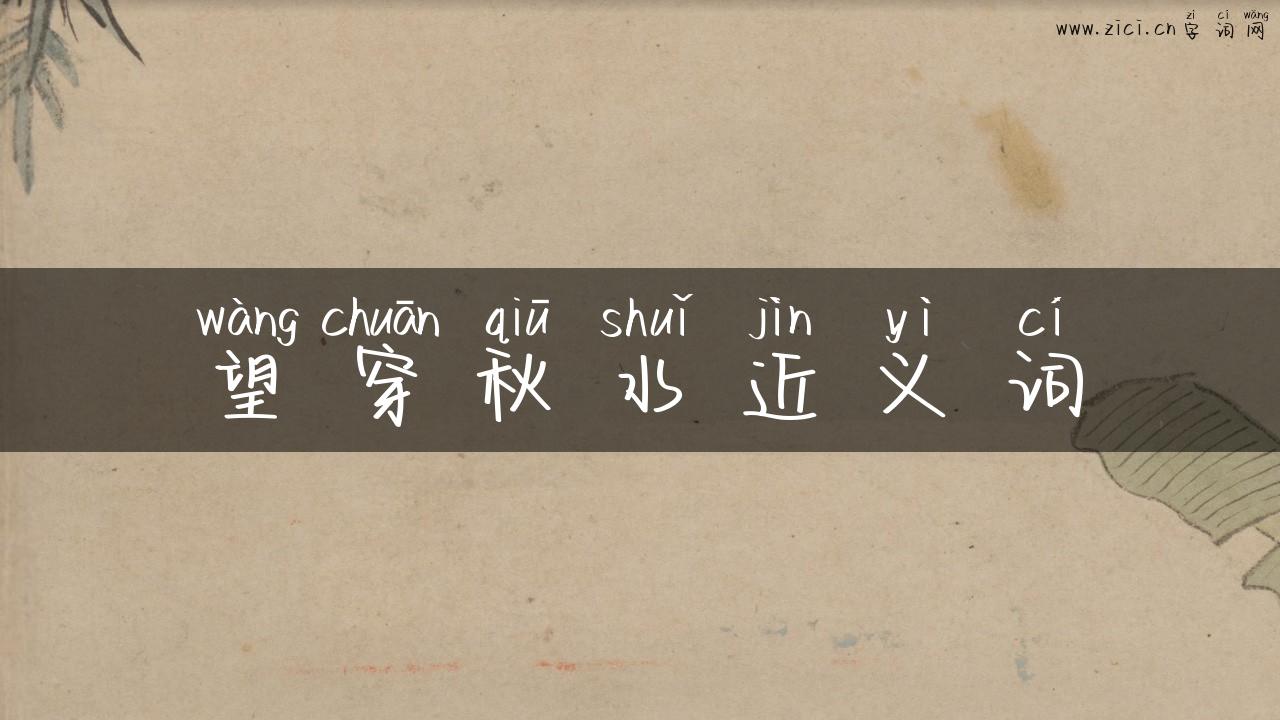 zì cí wǎng
www.zici.cn 字词网
wàng chuān qiū shuǐ jìn yì cí
望穿秋水近义词